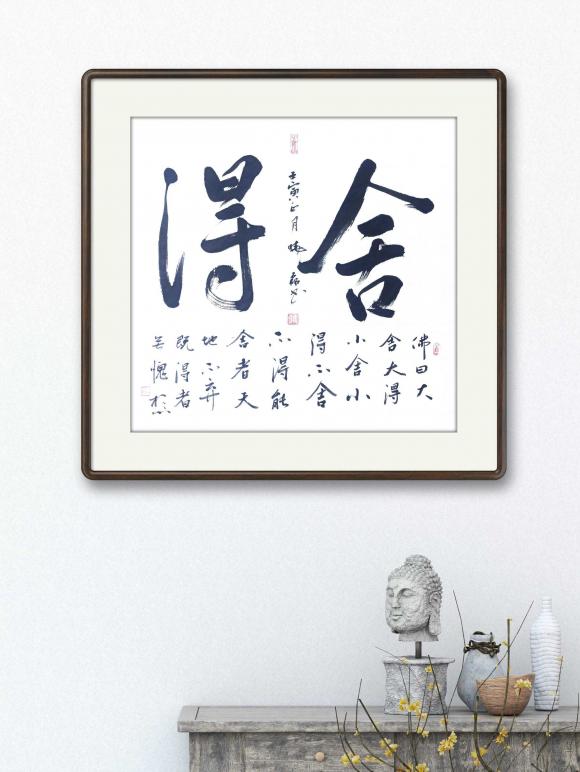 舍得
壬寅正月
佛曰大
舍大得
小舍小
得不舍
不得能
舍者天
地不弃
既得者
愧